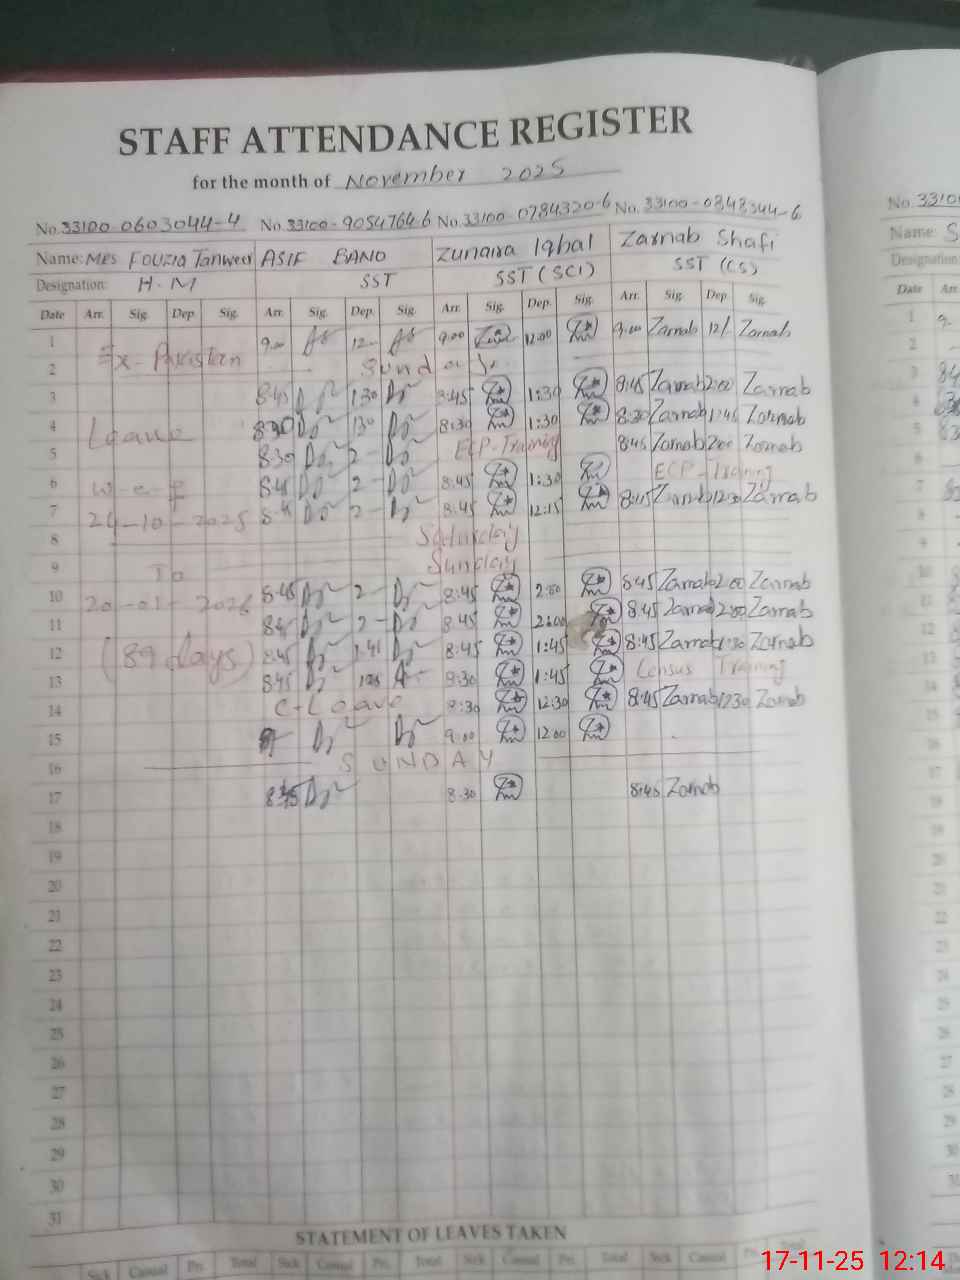 STAFF ATTENDANCE REGISTER
for the month of November 2025
No. 33100-0603044-4 No. 33100-9054764-6 No. 33100-0784320-6 No. 33100-0848344-6
Name: Mrs Fouzia Tanweer ASIF BANO Zunaira Iqbal Zarnab Shafi
Designation: H.M SST SST (SCI) SST (CS)
Date Arr. Sig. Dep. Sig. Arr. Sig. Dep. Sig. Arr. Sig. Dep. Sig. Arr. Sig. Dep. Sig.
1 9:00 12- 9:00 12:00 9:00 Zarnab 12/- Zarnab
2 Ex-Pakistan Sunday
3 8:45 1:30 8:45 1:30 8:45 Zarnab 2:00 Zarnab
4 Leave 8:30 1:30 8:30 1:30 8:30 Zarnab 1:45 Zarnab
5 8:30 2- ECP-Training 8:45 Zarnab 2:00 Zarnab
6 w-e-f 8:45 2- 8:45 1:30 ECP-Training
7 24-10-2025 2- 8:45 12:15 8:45 Zarnab 12:30 Zarnab
8 Saturday
9 To Sunday
10 20-01-2026 8:45 2- 8:45 2:00 8:45 Zarnab 2:00 Zarnab
11 2- 8:45 2:00 8:45 Zarnab 2:00 Zarnab
12 (89 days) 8:45 8:45 1:45 8:45 Zarnab 1:30 Zarnab
13 8:45 9:30 1:45 Census Training
14 C-Leave 9:30 12:30 8:45 Zarnab 12:30 Zarnab
15 9:00 12:00
16 SUNDAY
17 8:45 8:30 8:45 Zarnab
18
19
20
21
22
23
24
25
26
27
28
29
30
31
STATEMENT OF LEAVES TAKEN
Sick Casual Pri. Total Sick Casual Pri. Total Sick Casual Pri. Total Sick Casual Pri. Total
No. 3310
Name: S
Designation
Date Arr.
17-11-25 12:14